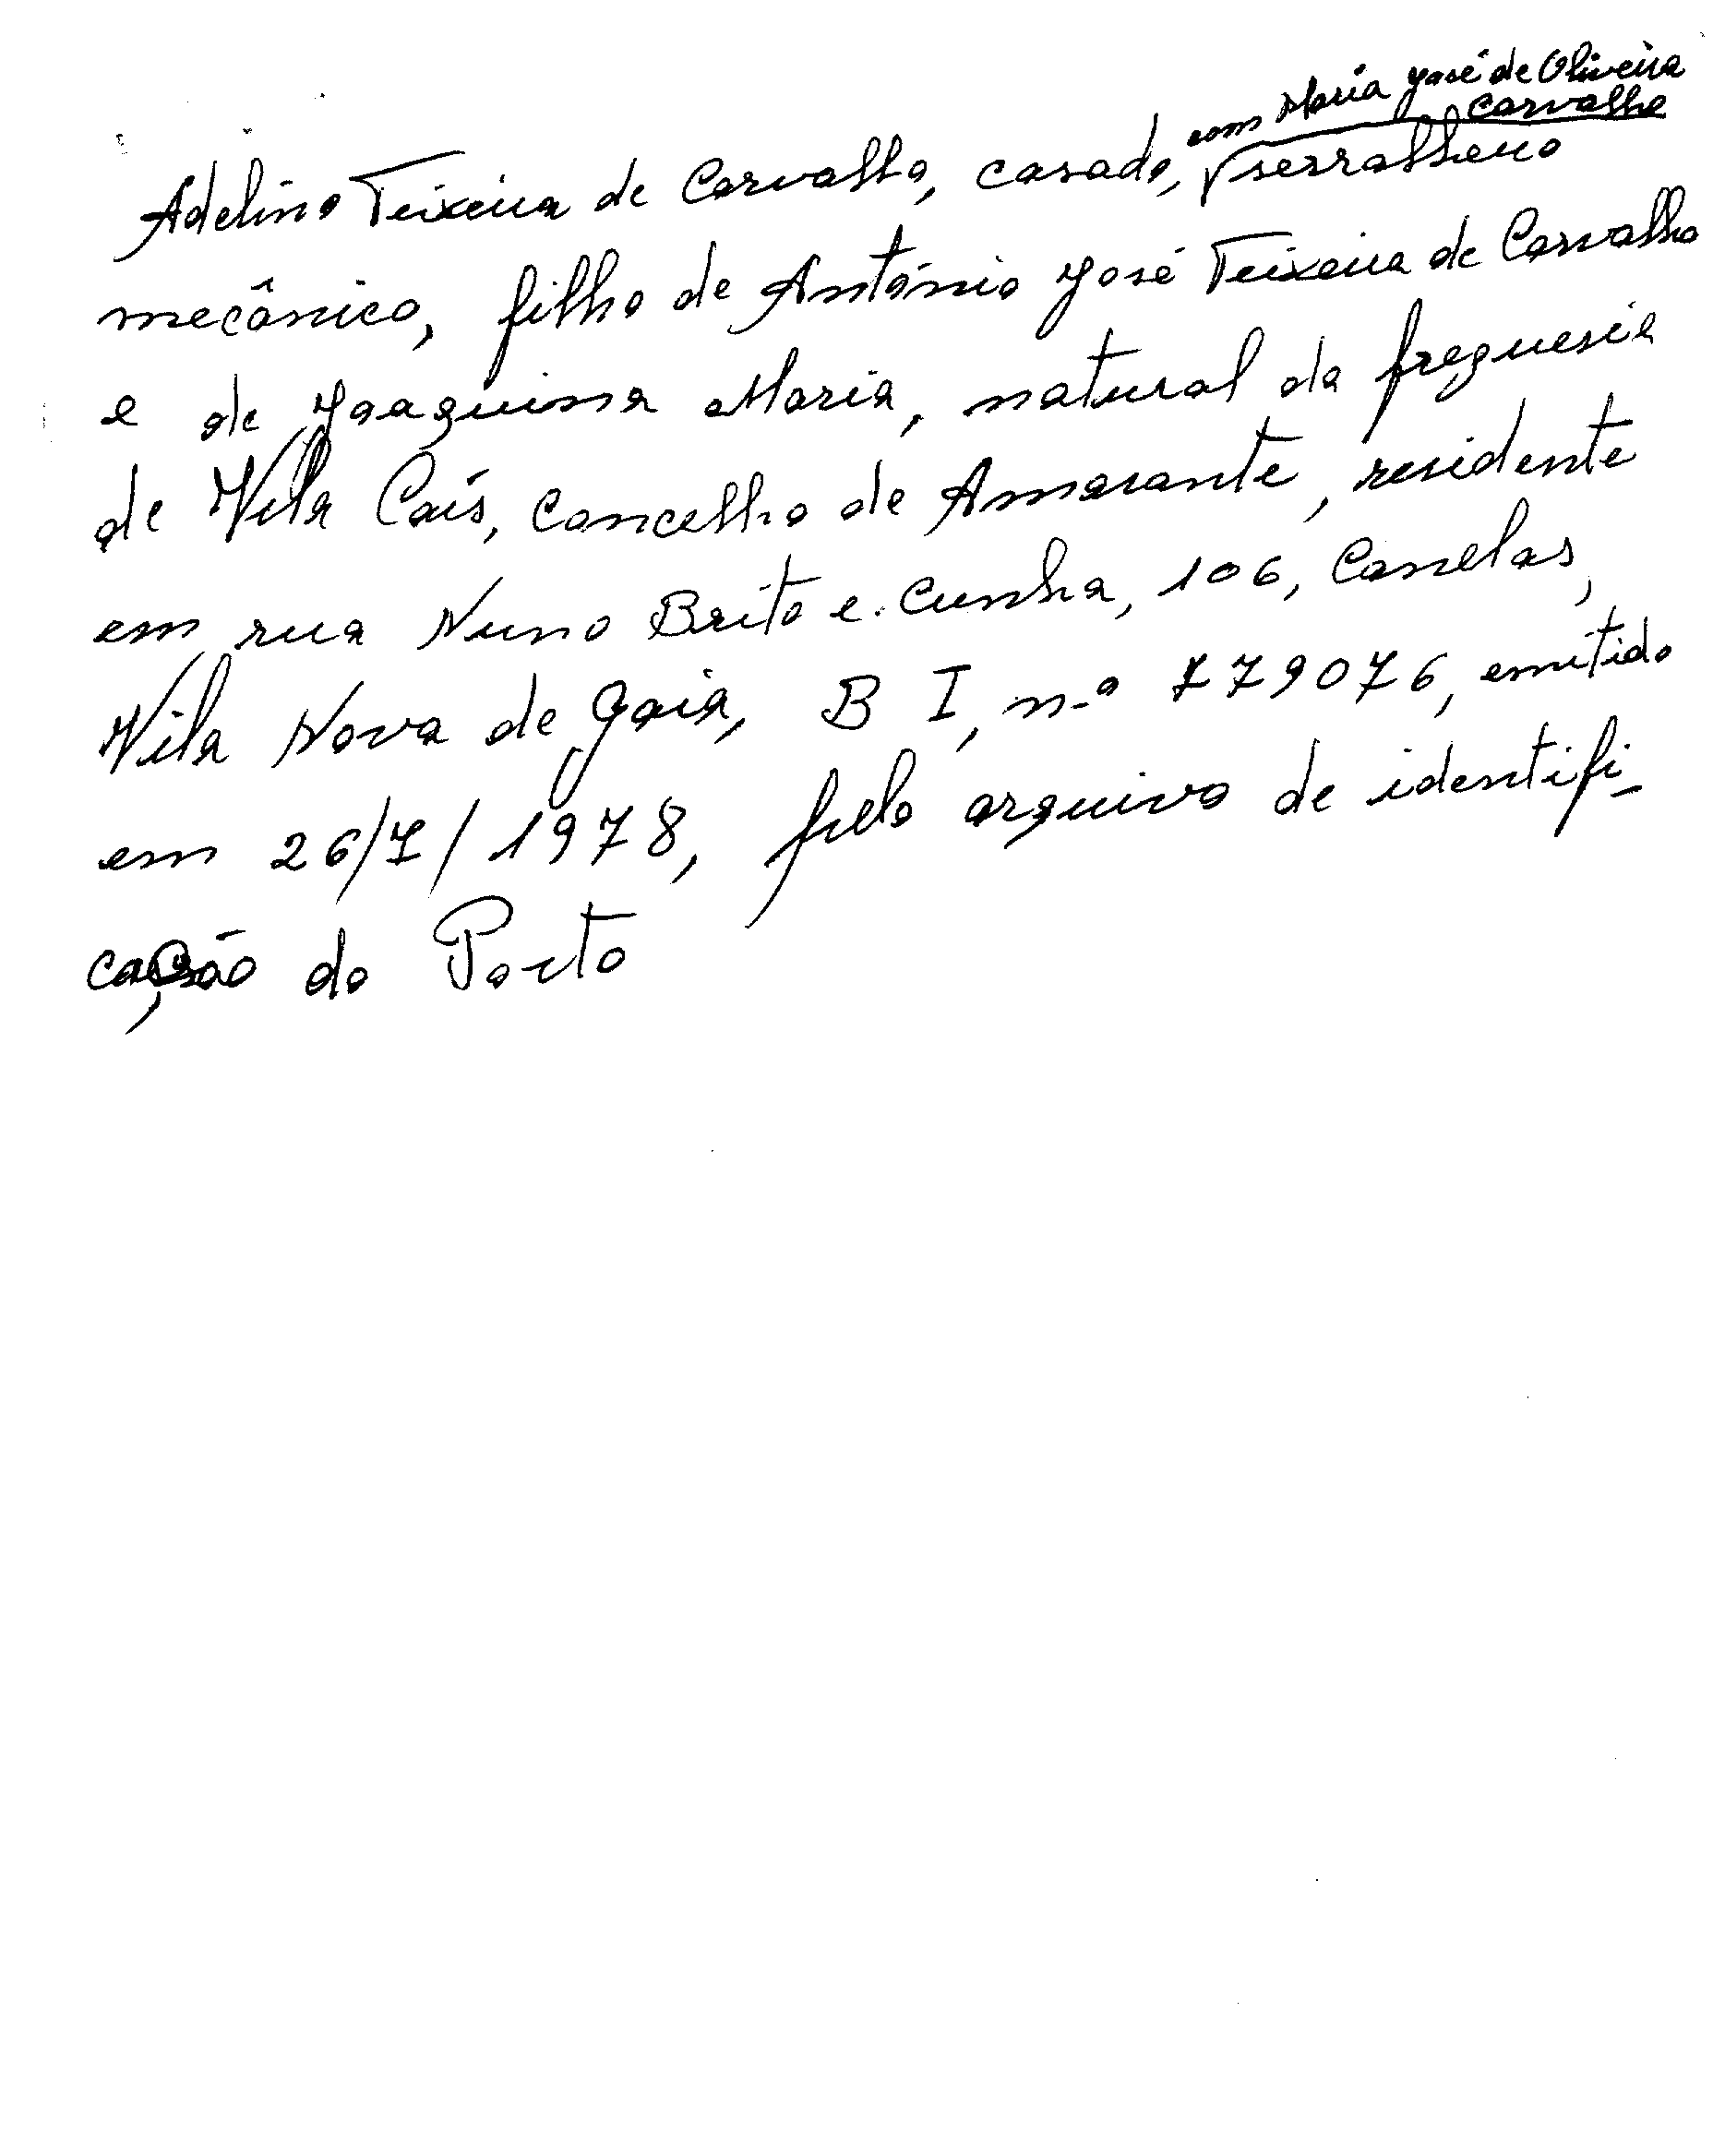 com Maria José de Oliveira
Carvalho
Adelino Teixeira de Carvalho, casado, serralheiro
mecânico, filho de António José Teixeira de Carvalho
e de Joaquina Maria, natural da freguesia
de Vila Caís, concelho de Amarante, residente
em rua Nuno Brito e. Cunha, 106, Canelas,
Vila Nova de Gaia, B I, n.º 779076, emitido
em 26/7/1978, pelo arquivo de identifi-
cação do Porto